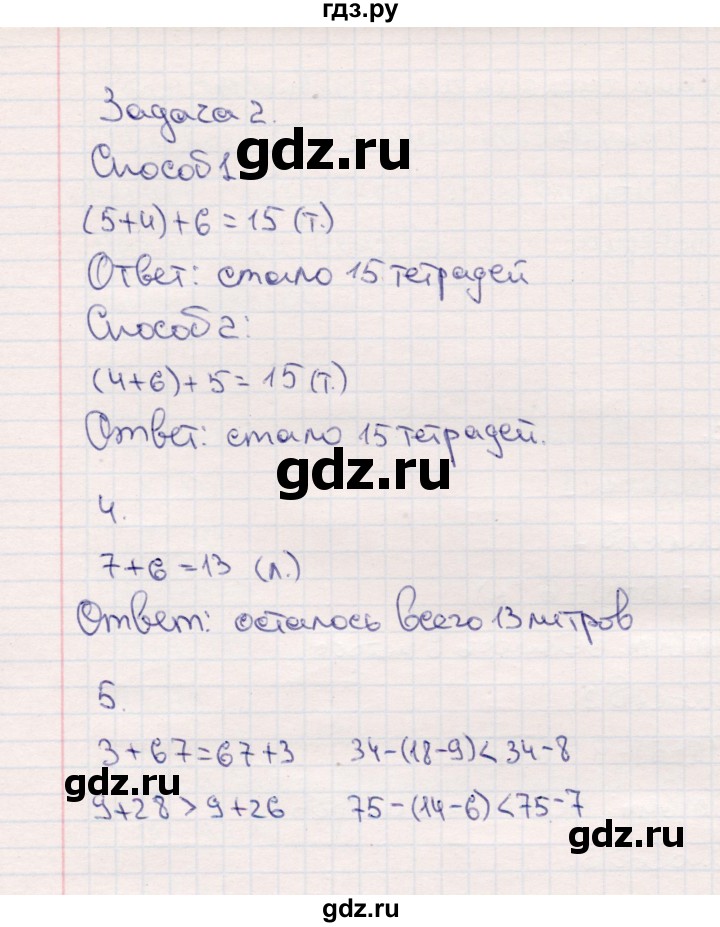 гдз.ру
Задача 2.
Способ 1
gdz.ru
(5+4)+6=15 (т.)
Ответ: стало 15 тетрадей
Способ 2:
(4+6)+5=15 (т.)
Ответ: стало 15 тетрадей.
gdz.ru
4.
7+6=13 (л.)
Ответ: осталось всего 13 литров
5.
3+67=67+3 34-(18-9)<34-8
gdz.ru
9+28>9+26 75-(14-6)<75-7
gdz.ru
gdz.ru